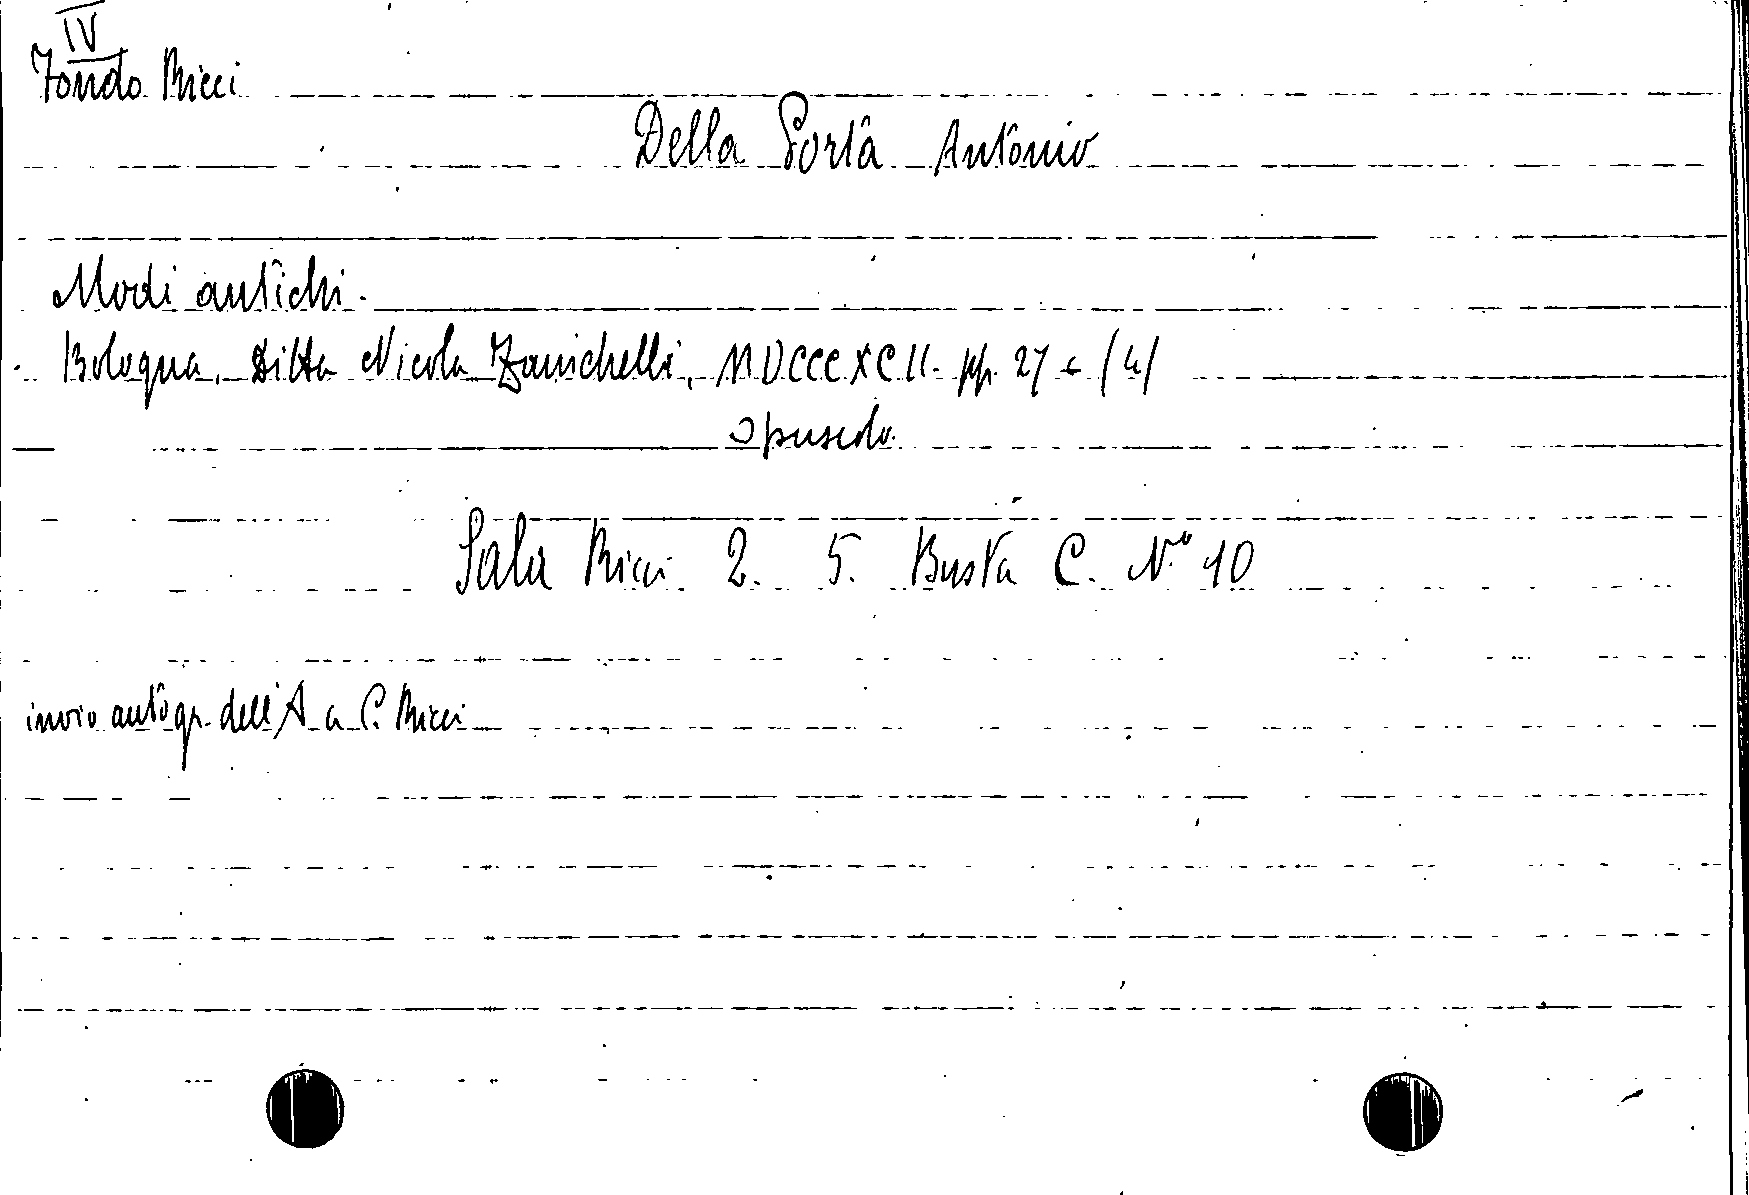 IV
Fondo Ricci
Della Porta Antonio
Modi antichi.
Bologna, Ditta Nicola Zanichelli, MDCCCXCII. pp. 27 e (4)
opuscolo.
Sala Ricci 2. 5. Busta C. N.° 10
invio autogr. dell'A a C. Ricci